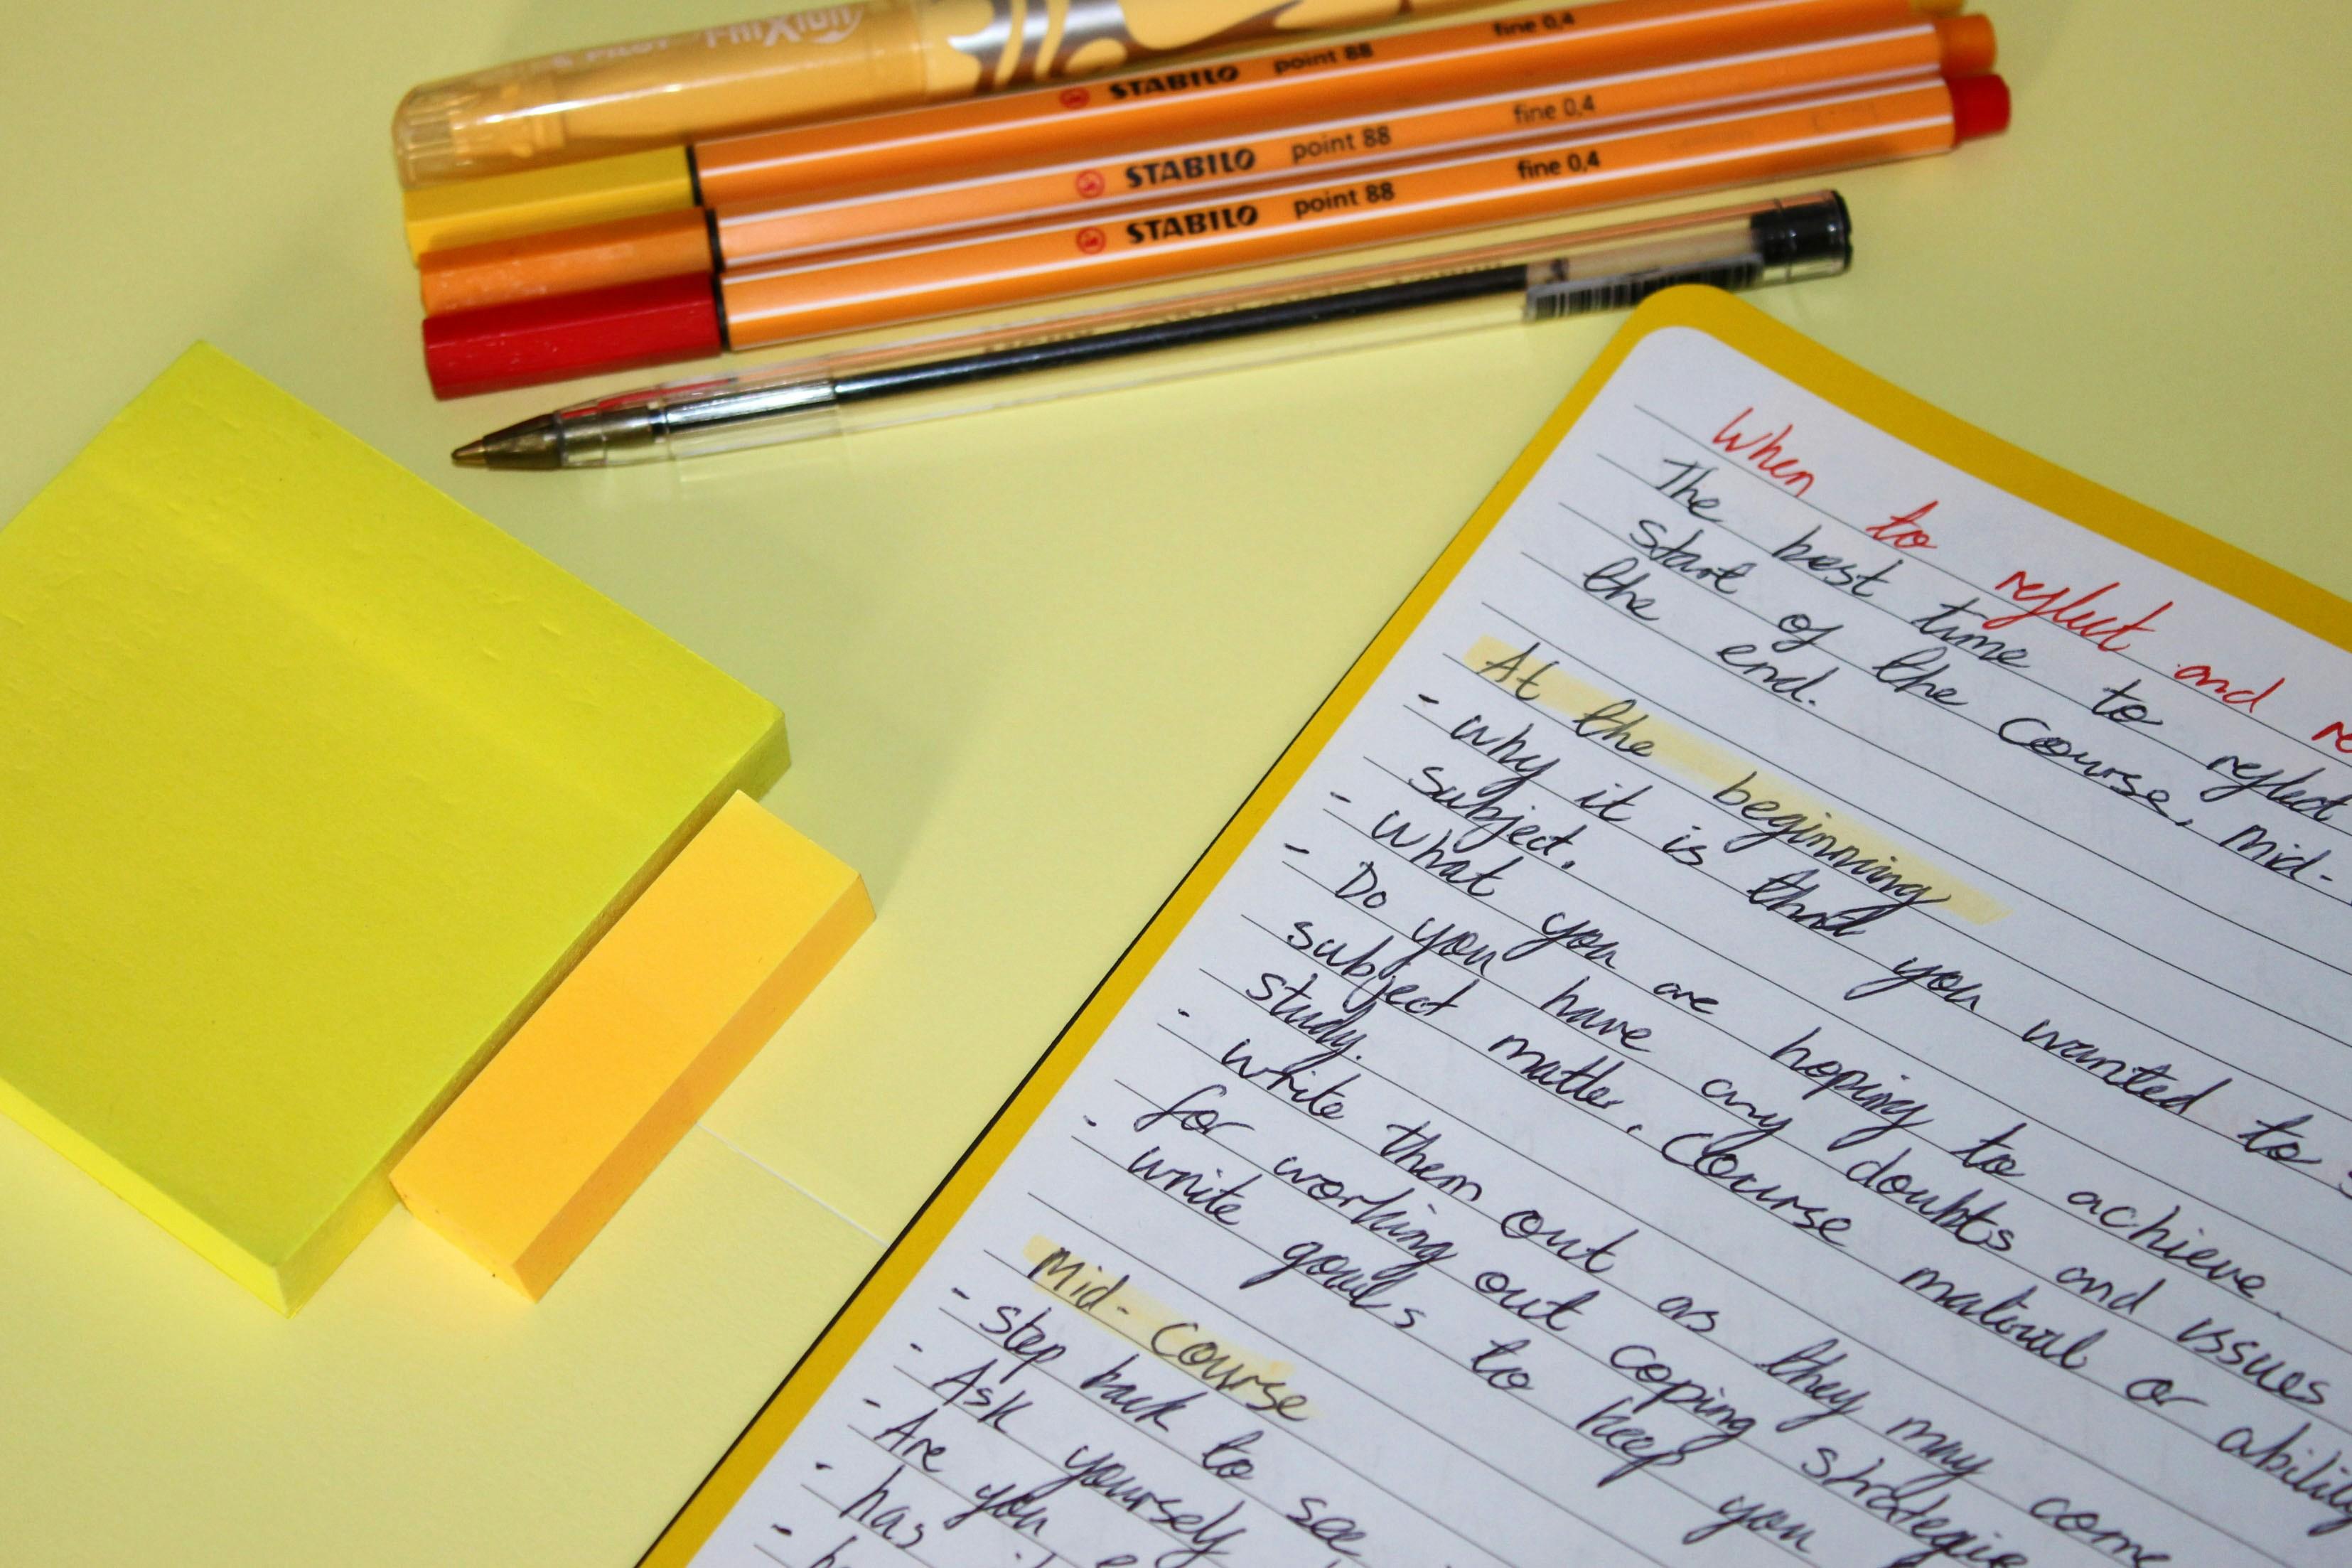 PILOT FriXion
STABILO point 88 fine 0,4
STABILO point 88 fine 0,4
STABILO point 88 fine 0,4
When to reflect and re
The best time to reflect
start of the course, mid-
the end.
At the beginning
- why it is that you wanted to s
subject.
- what you are hoping to achieve.
- Do you have any doubts and issues
subject matter, course material or ability
study.
- write them out as they may come
for working out coping strategies
- write goals to keep you
Mid-course
- step back to see
- Ask yourself
- Are you
- has